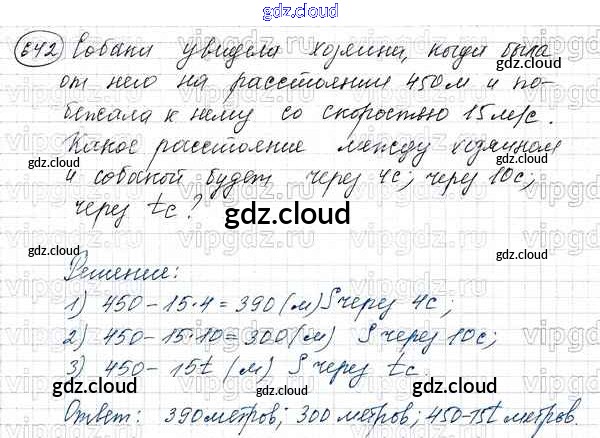 gdz.cloud
642 Собака увидела хозяина, когда была
от него на расстоянии 450 м и по-
бежала к нему со скоростью 15 м/с.
Какое расстояние между хозяином
и собакой будет через 4с; через 10с;
через tс?
Решение:
1) 450 - 15·4 = 390 (м) S через 4с;
2) 450 - 15·10 = 300 (м) S через 10с;
3) 450 - 15t (м) S через tс.
Ответ: 390 метров; 300 метров; 450-15t метров.
gdz.cloud
gdz.cloud
gdz.cloud
gdz.cloud
gdz.cloud
gdz.cloud
gdz.cloud
gdz.cloud
gdz.cloud
gdz.cloud
vipgdz.ru